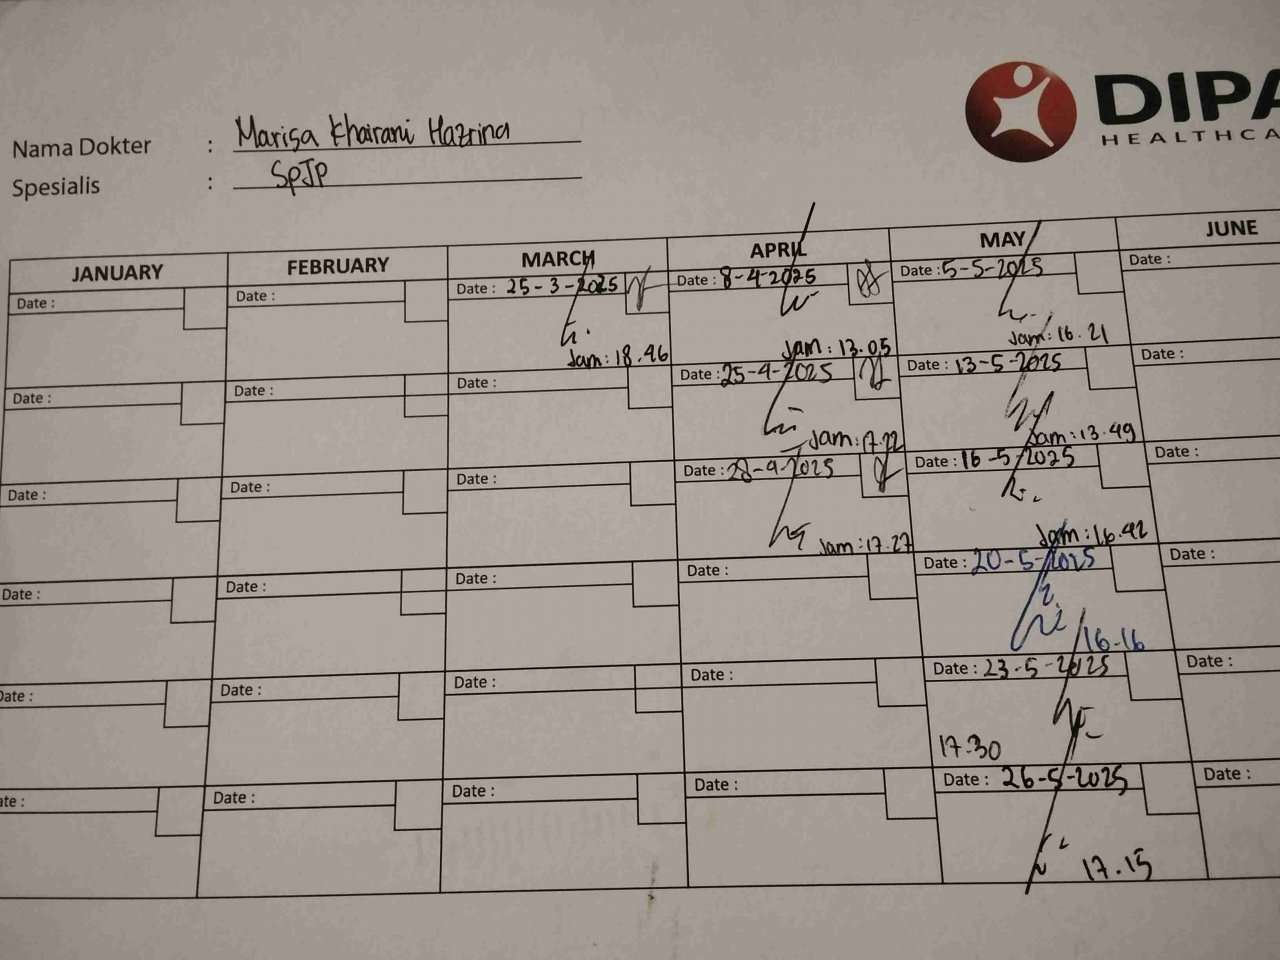 DIPA
HEALTHCA
Nama Dokter : Marisa Khairani Hazrina
Spesialis : SpJP
JANUARY FEBRUARY MARCH APRIL MAY JUNE
Date : Date : Date : 25-3-2025 Date : 8-4-2025 Date : 5-5-2025 Date :
Jam : 18.46 Jam : 13.05 Jam : 16.21
Date : Date : Date : Date : 25-4-2025 Date : 13-5-2025 Date :
Jam : 17.22 Jam : 13.49
Date : Date : Date : Date : 28-4-2025 Date : 16-5-2025 Date :
Jam : 17.27 Jam : 16.42
Date : Date : Date : Date : Date : 20-5-2025 Date :
16.16
Date : Date : Date : Date : Date : 23-5-2025 Date :
17.30
ate : Date : Date : Date : Date : 26-5-2025 Date :
17.15